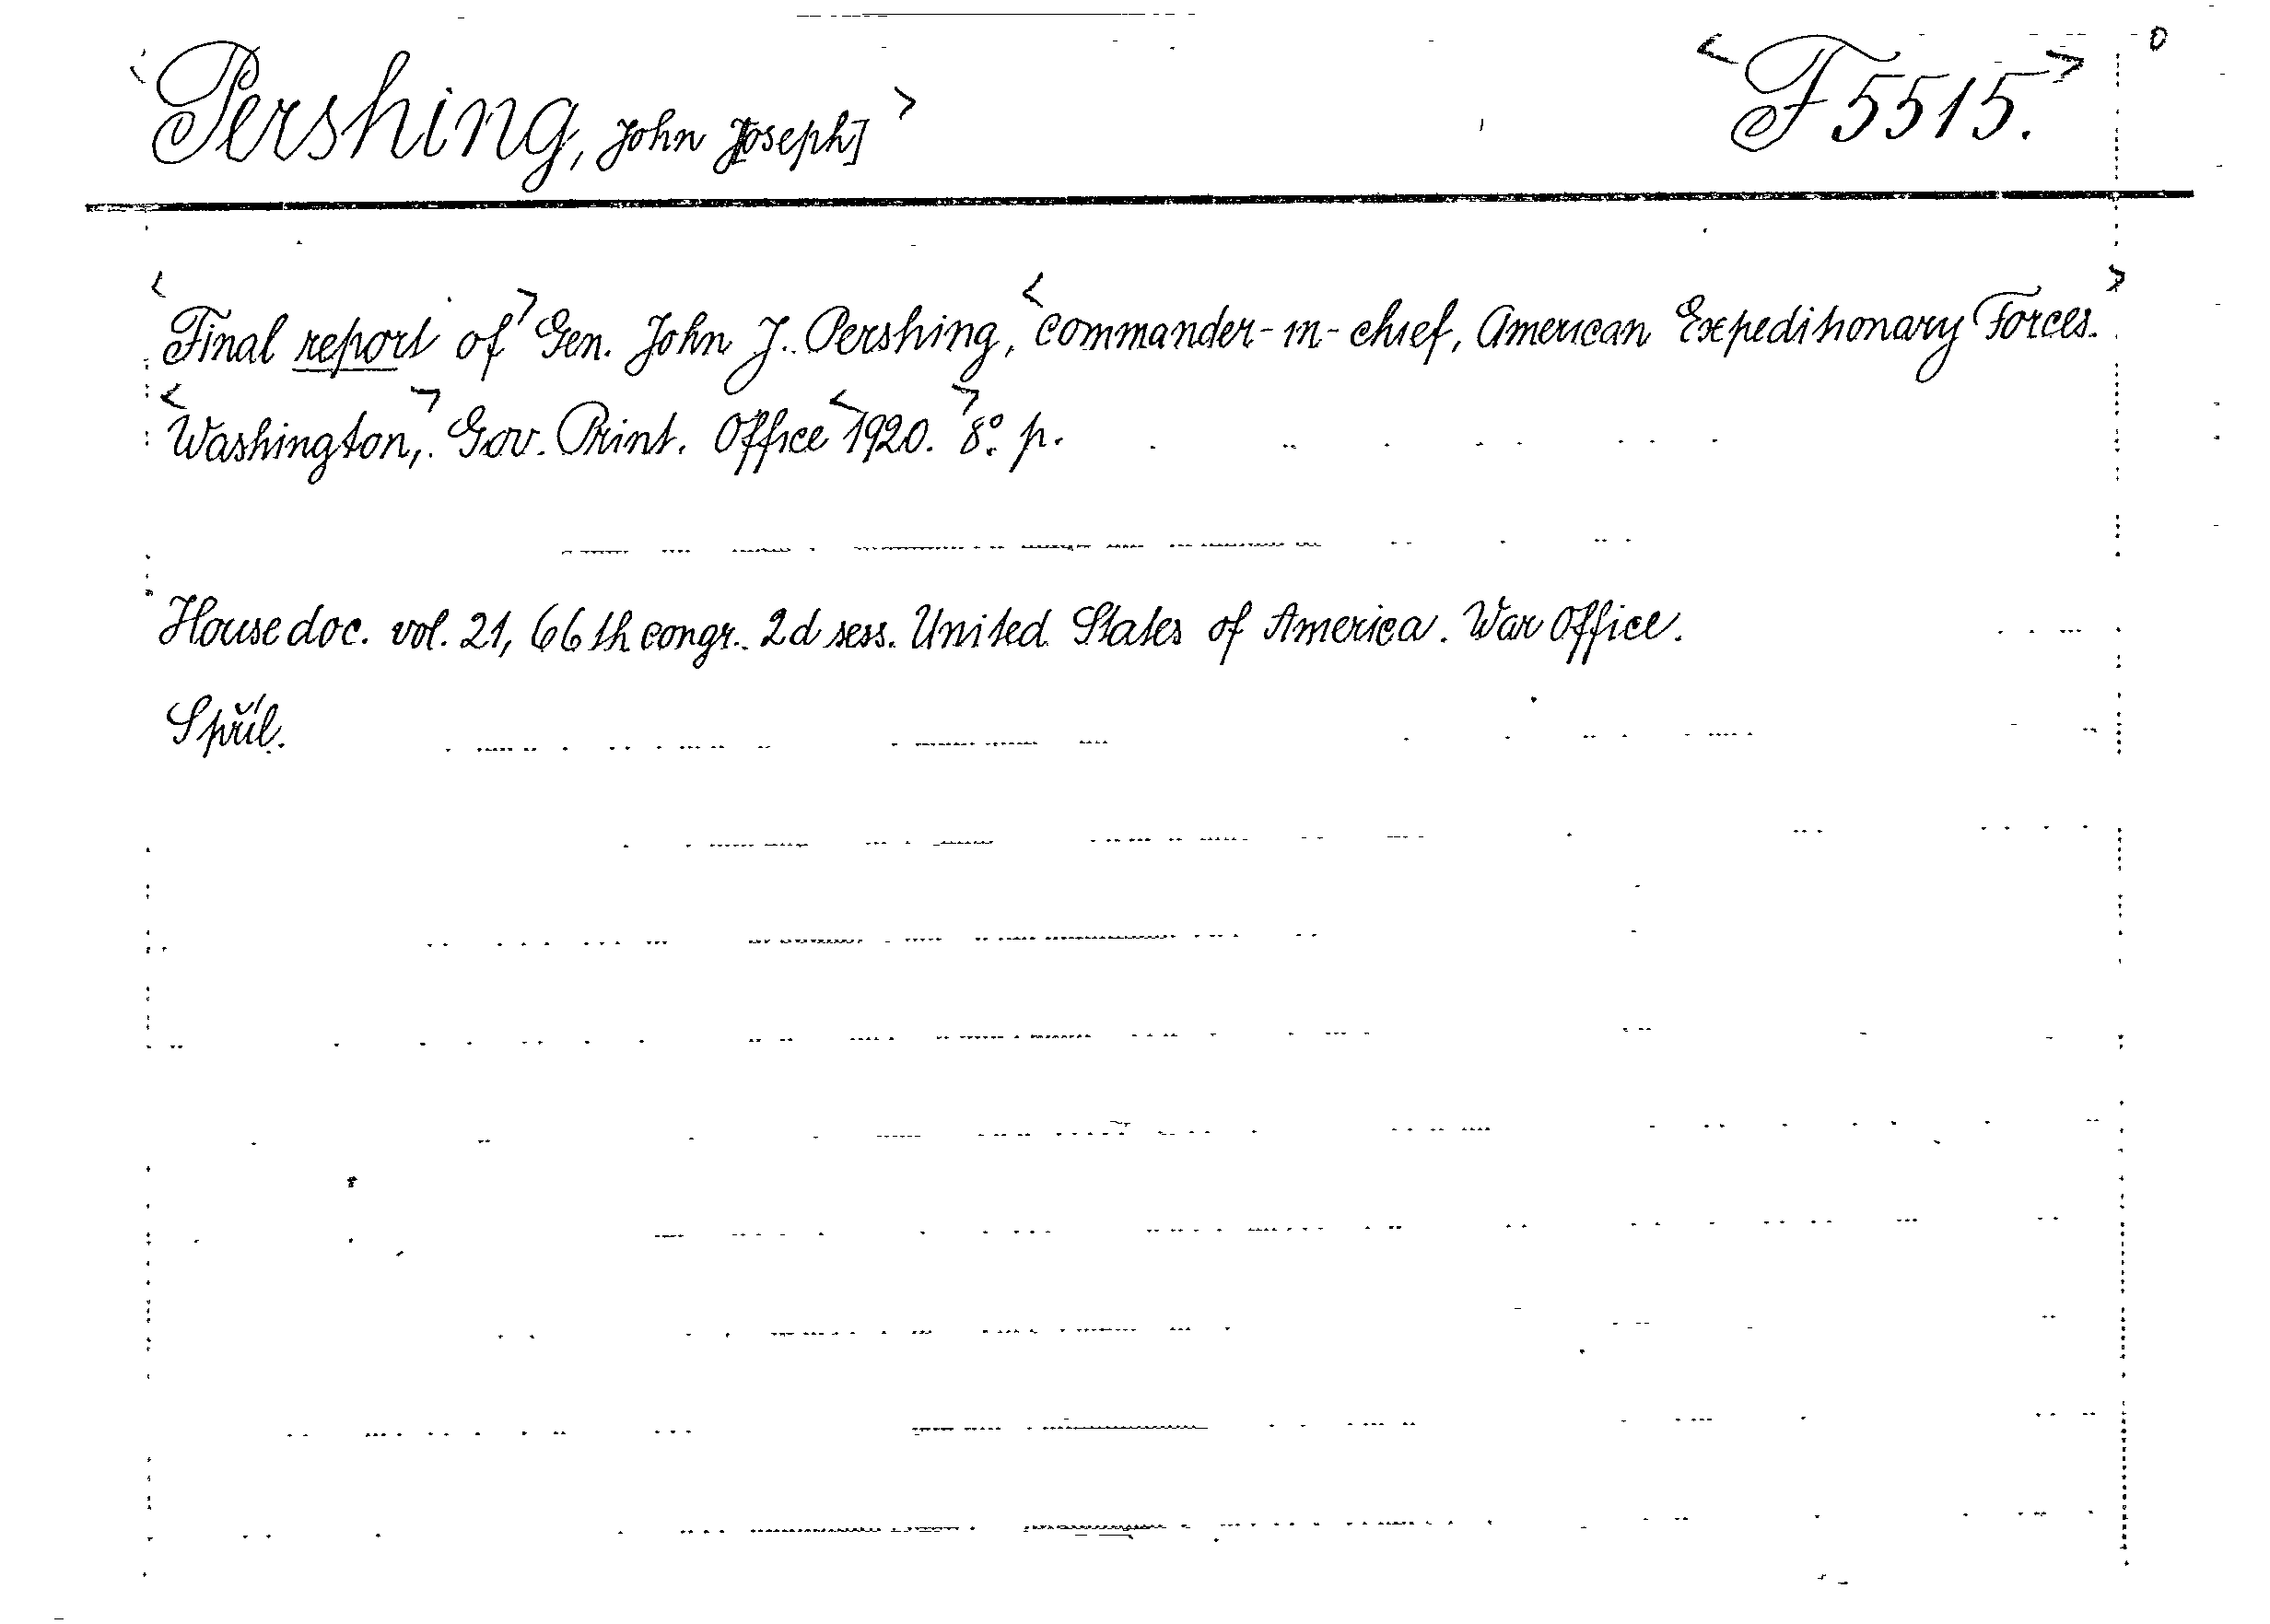 <Pershing, John J[oseph]> <F 5515.> 0
<Final report of> Gen. John J. Pershing, <commander-in-chief, American Expeditionary Forces.>
<Washington,> Gov. Print. Office <1920.> 8°. p.
House doc. vol. 21, 66th congr. 2d sess. United States of America. War Office.
S příl.